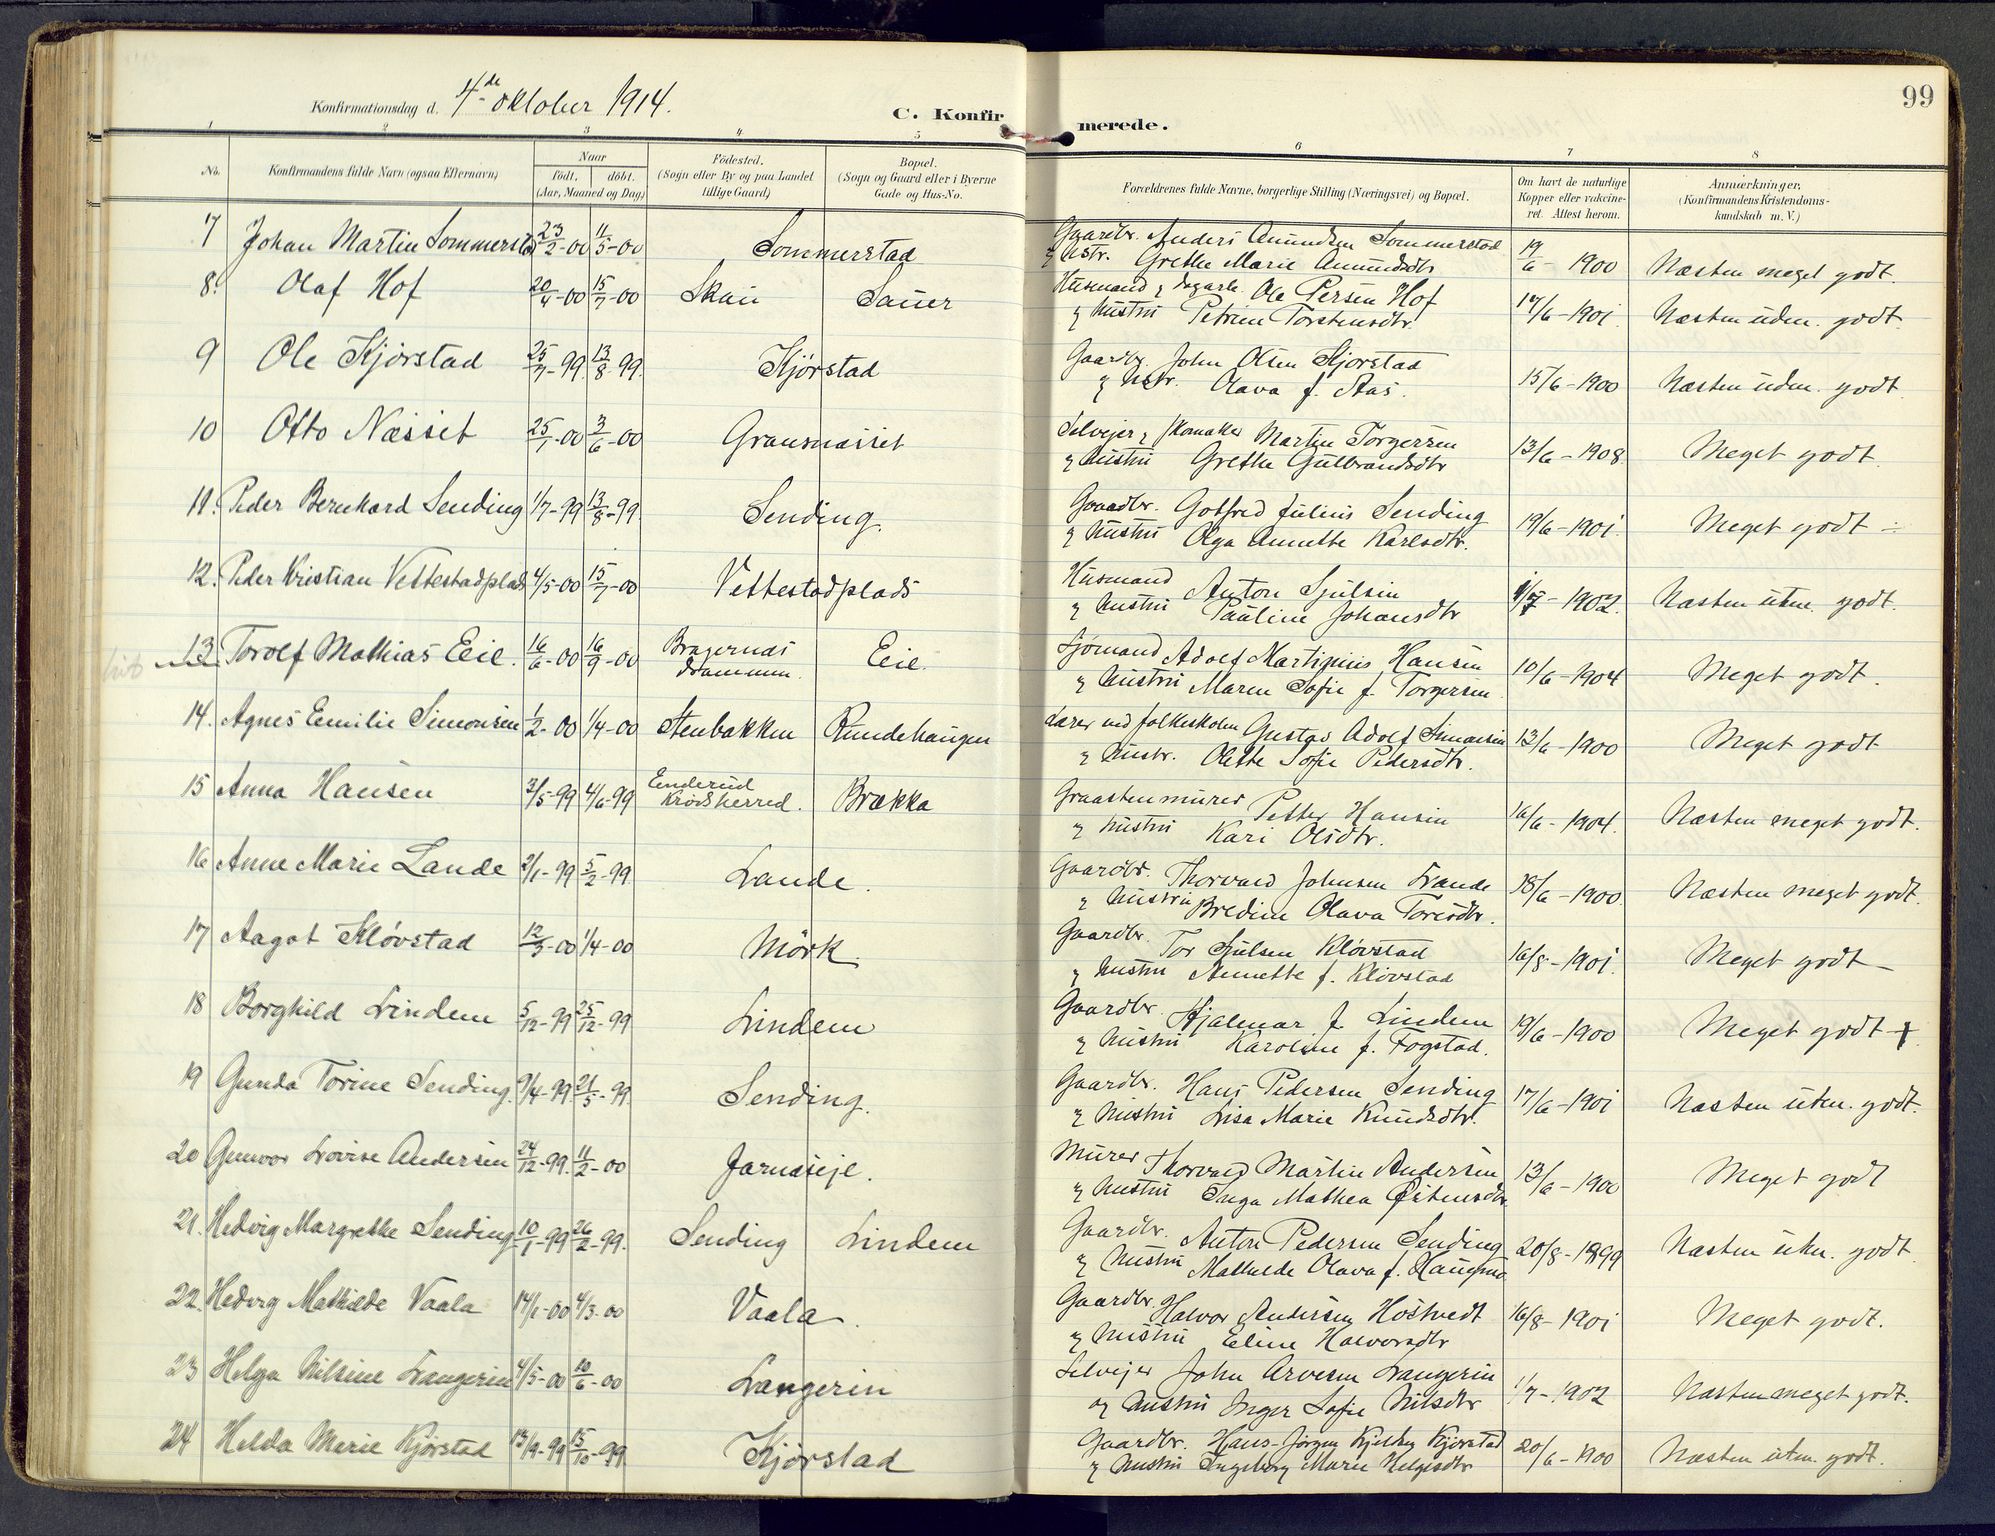 99
Konfirmationsdag d. 4de oktober 1914.
C. Konfirmerede.
1 2 3 4 5 6 7 8
No. Konfirmandens fulde Navn (ogsaa Efternavn)
Naar
Født. døbt.
(Aar, Maaned og Dag)
Födested.
(Sogn eller By og paa Landet
tillige Gaard)
Bopæl.
(Sogn og Gaard eller i Byerne
Gade og Hus-No.
Forældrenes fulde Navne, borgerlige Stilling (Næringsvei) og Bopæl.
Om havt de naturlige
Kopper eller vakcine-
ret. Attest herom.
Anmærkninger,
(Konfirmandens Kristendoms-
kundskab m. V.)
7 Johan Martin Sommerstad 23/2-00 11/5-00 Sommerstad Gaardbr. Anders Amundsen Sommerstad 19/6-1900 Næsten meget godt.
& Hstr. Grethe Marie Amundsdtr
8. Olaf Hof 20/4-00 15/7-00 Skaii Sauer Husmand & dagarb. Ole Persen Hof 17/6-1901 Næsten uden. godt.
& Hustru Petrine Torstensdtr.
9 Ole Kjørstad 25/7-99. 13/8-99. Kjørstad Gaardbr. John Olsen Kjørstad 15/6-1900 Næsten uden. godt.
& Hstr. Olava f. Aas.
10 Otto Næsset 25/1-00 3/6-00 Gransnæsset Selveier & skomaker Martin Torgersen 13/6-1908. Meget godt.
& Hustru Grethe Gulbrandsdtr
11. Peder Bernhard Sending 1/7-99 13/8-99. Sending. Gaardbr. Gotfred Julius Sending 19/6-1901. Meget godt
& Hustru Olga Annette Karlsdtr.
12. Peder Kristian Vettestadplads 4/5-00 15/7-00 Vettestadplads Husmand Anton Sjulsen 1/7-1902. Næsten utm. godt.
& Hustru Pauline Johansdtr
13 Torolf Mathias Eeie. 16/6-00 16/9-00 Bragernas Drammen. Eeie. Sjømand Adolf Martinius Hansen 10/6-1904 Meget godt.
& Hustru Maren Sofie f. Torgersen.
14. Agnes Emilie Simonsen 1/2-00 1/4-00 Stenbakken Rundehaugen Lærer ved folkeskolen Gustav Adolf Simonsen 13/6-1900 Meget godt
& Hustr. Olette Sofie Pedersdtr.
15 Anna Hansen 3/5-99 4/6-99 Enderud Krødsherred. Brækka Graastenmurer Petter Hansen 16/6-1904. Næsten meget godt.
& Hustru Kari Olsdtr.
16 Anne Marie Lande 2/1-99 5/2-99. Lande. Gaardbr. Thorvald Johnsen Lande 18/6-1900. Næsten meget godt.
& Hustru Bredine Olava Toresdtr.
17 Aagot Kløvstad 12/3-00 1/4-00 Mörk. Gaardbr. Tor Sjulsen Kløvstad 16/8-1901. Meget godt
& Hustru Annette f. Kløvstad
18 Borghild Lindem 5/12-99 25/12-99 Lindem Gaardbr. Hjalmar f. Lindem 19/6-1900 Meget godt +
& Hustru Karoline f. Fogstad.
19 Gunda Torine Sending. 9/4-99. 21/5-99. Sending. Gaardbr. Hans Pedersen Sending 17/6-1901 Næsten utm. godt.
& Hustru Lisa Marie Knudsdtr.
20 Gunvor Lovise Andersen 24/12-99. 11/2-00 Jarnæseje. Murer Thorvald Martin Andersen 13/6-1900 Meget godt
& Hustru Inga Mathea Østensdtr
21. Hedvig Margrethe Sending 10/1-99 26/2-99. Sending Lindem Gaardbr. Anton Pedersen Sending 20/8-1899 Næsten utm. godt
& Hustru Mathilde Olava f.
22. Hedvig Mathilde Vaala 14/1-00 4/3-00 Vaala. Gaardbr. Halvor Andersen Hostvedt 16/8-1901 Meget godt.
& Hustru Eline Halvorsdtr
23 Helga Nilsine Langerin 4/5-00 10/6-00 Langerin Selveier John Arvesen Langerin 1/7-1902 Næsten meget godt.
og Hustru Inger Sofie Nilsdtr
24 Helda Marie Kjørstad 13/9-99 15/10-99. Kjørstad Gaardbr. Hans Jörgen Kjørstad 20/6-1900 Næsten utm. godt.
& Hustru Ingeborg Marie Helgesdtr